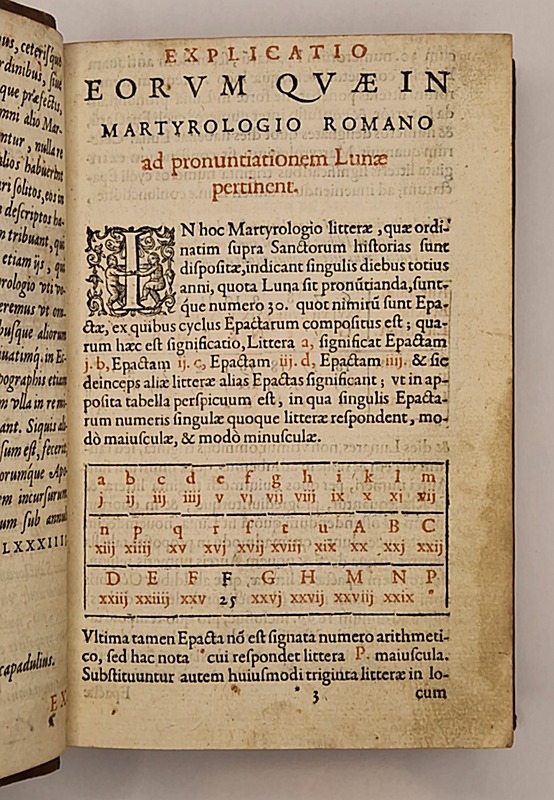 us, ceterisque
rdinibus, siue
que præfectis,
mni alio Mar-
ntur, nulla re
alios habuerint
ri solitos, eos in
descriptos ha-
n tribuant, qui
etiam ijs, qui
rologio vti vo-
eremus vt om-
busque aliorum
uatimq. in Ec-
pographis etiam
m vlla in re mi-
ant. Siquis ali-
sum est, fecerit,
orumque Apo-
em incursurum
um sub annul
LXXXIIII
capadulius.
EX
EXPLICATIO
EORVM QVÆ IN
MARTYROLOGIO ROMANO
ad pronuntiationem Lunæ
pertinent.
IN hoc Martyrologio litteræ, quæ ordi-
natim supra Sanctorum historias sunt
dispositæ, indicant singulis diebus totius
anni, quota Luna sit pronũtianda, sunt-
que numero 30. quot nimirũ sunt Epa-
ctæ, ex quibus cyclus Epactarum compositus est; qua-
rum hæc est significatio, Littera a, significat Epactam
j. b, Epactam ij. c, Epactam iij. d, Epactam iiij. & sic
deinceps aliæ litteræ alias Epactas significant; vt in ap-
posita tabella perspicuum est, in qua singulis Epacta-
rum numeris singulæ quoque litteræ respondent, mo-
dò maiusculæ, & modò minusculæ.
a b c d e f g h i k l m
j ij iij iiij v vj vij viij ix x xj xij
n p q r s t u A B C
xiij xiiij xv xvj xvij xviij xix xx xxj xxij
D E F F G H M N P
xxiij xxiiij xxv 25 xxvj xxvij xxviij xxix *
Vltima tamen Epacta nõ est signata numero arithmeti-
co, sed hac nota * cui respondet littera P. maiuscula.
Substituuntur autem huiusmodi triginta litteræ in lo-
* 3 cum